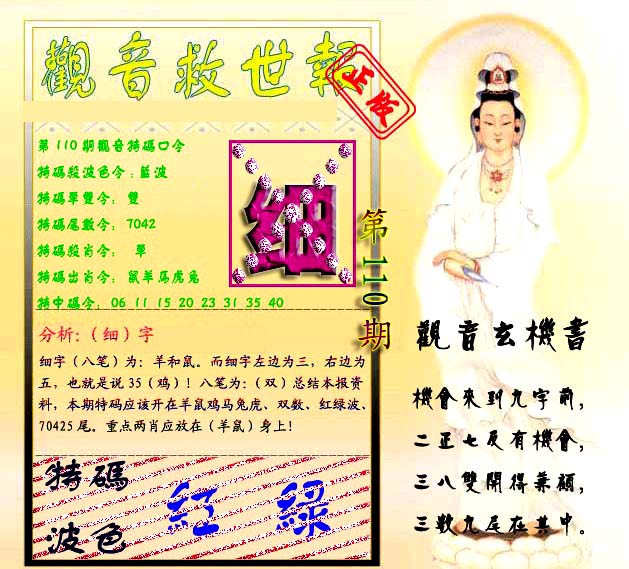 觀音救世報
正版
第110期觀音特碼口令
特碼殺波色令：藍波
特碼單雙令： 雙
特碼尾數令： 7042
特碼殺肖令： 單
特碼出肖令： 鼠羊馬虎兔
特中碼令：06 11 15 20 23 31 35 40
细
第110期
分析:（细）字
细字（八笔）为：羊和鼠。而细字左边为三，右边为
五，也就是说 35（鸡）！八笔为:（双）总结本报资
料，本期特码应该开在羊鼠鸡马兔虎、双数、红绿波、
70425 尾。重点两肖应放在（羊鼠）身上！
特碼
波色
紅 綠
觀音玄機書
機會來到九字前，
二正七及有機會，
三八雙開得兼顧，
三數九尾在其中。